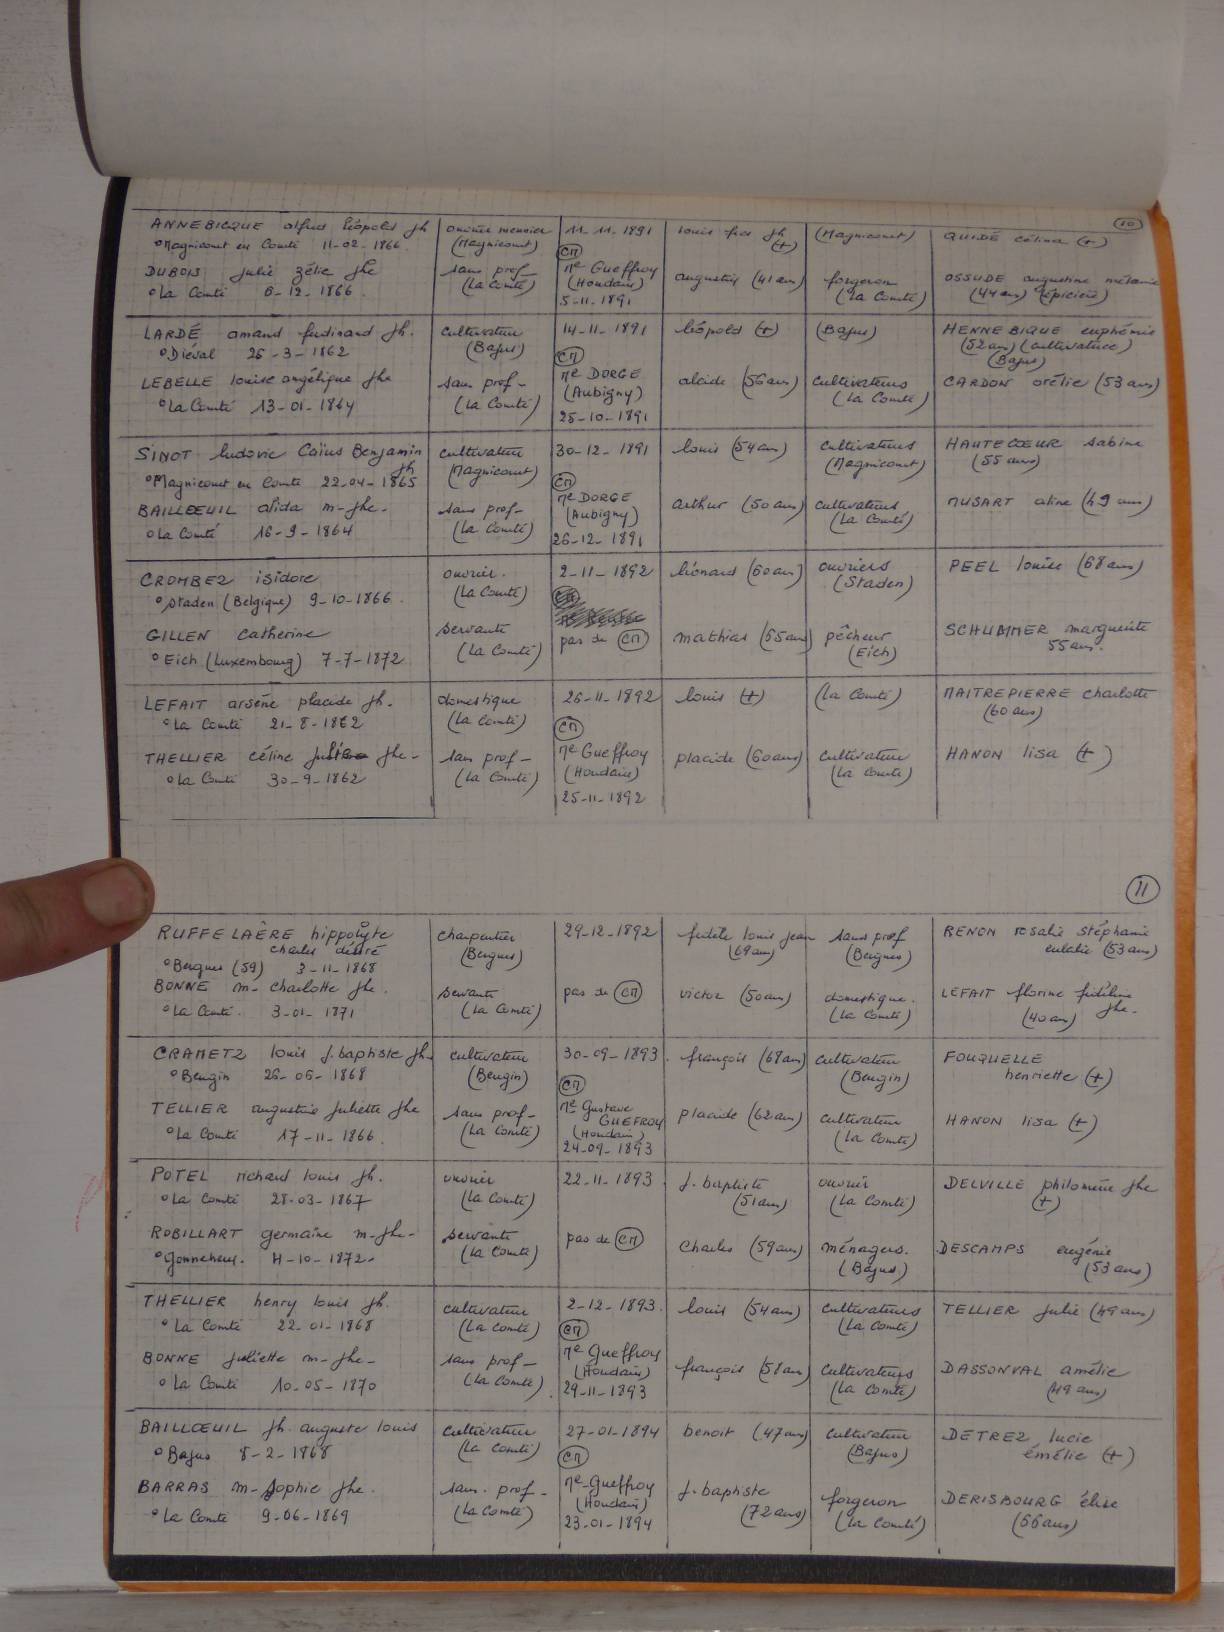 10
ANNEBICQUE alfred léopold jh ouvrier menuisier 11-11-1891 louis fçs jh (+) (Magnicourt) QUIDÉ célina (+)
° Magnicourt en Comté 11-02-1866. (Magnicourt) CM
DUBOIS julie zélie jhe sans prof- Me Gueffroy augustin (41 ans) forgeron OSSUDE augustine mélanie
° La Comté 6-12-1866. (La Comté) (Houdain) (La Comté) (44 ans) (épicière)
5-11-1891
LARDÉ amand ferdinand jh. cultivateur 14-11-1891 léopold (+) (Bajus) HENNEBIQUE euphémie
° Diéval 25-3-1862 (Bajus) CM (52 ans) (cultivatrice)
(Bajus)
LEBELLE louise angélique jhe sans prof- Me DORGE alcide (56 ans) cultivateurs CARDON orélie (53 ans)
° La Comté 13-01-1864 (La Comté) (Aubigny) (La Comté)
25-10-1891
SINOT ludovic Caïus Benjamin jh cultivateur 30-12-1891 louis (54 ans) cultivateurs HAUTECOEUR sabine
° Magnicourt en Comté 22-04-1865 (Magnicourt) CM (Magnicourt) (55 ans)
BAILLOEUIL alida m-jhe- sans prof- Me DORGE arthur (50 ans) cultivateurs MUSART aline (49 ans)
° La Comté 16-9-1864 (La Comté) (Aubigny) (La Comté)
26-12-1891
CROMBEZ isidore ouvrier. 2-11-1892 léonard (60 ans) ouvriers PEEL louise (68 ans)
° Staden (Belgique) 9-10-1866. (La Comté) (Staden)
GILLEN Catherine servante pas de CM mathias (55 ans) pêcheur SCHUMMER marguerite
° Eich (Luxembourg) 7-7-1872 (La Comté) (Eich) 55 ans.
LEFAIT arsène placide jh. domestique 26-11-1892 louis (+) (La Comté) MAITREPIERRE charlotte
° La Comté 21-8-1862 (La Comté) CM (60 ans)
THELLIER céline jhe- sans prof- Me Gueffroy placide (60 ans) cultivateur HANON lisa (+)
° La Comté 30-9-1862 (La Comté) (Houdain) (La Comté)
25-11-1892
11
RUFFELAÈRE hippolyte charpentier 29-12-1892 fidèle louis jean sans prof RENON rosalie stéphanie
charles désiré (Bergues) (69 ans) (Bergues) eulalie (53 ans)
° Bergues (59) 3-11-1868
BONNE m- charlotte jhe. servante pas de CM victor (50 ans) domestique. LEFAIT florine fidéline jhe-
° La Comté. 3-01-1871 (La Comté) (La Comté) (40 ans)
CRAMETZ louis j.baptiste jh- cultivateur 30-09-1893. françois (68 ans) cultivateur FOUQUELLE
° Beugin 26-06-1868 (Beugin) CM (Beugin) henriette (+)
TELLIER augustine juliette jhe sans prof- Me Gustave GUEFROY placide (62 ans) cultivateur HANON lisa (+)
° La Comté 17-11-1866. (La Comté) (Houdain) (La Comté)
24-09-1893
POTEL richard louis jh. ouvrier 22-11-1893. j. baptiste ouvrier DELVILLE philomène jhe
° La Comté 28-03-1867 (La Comté) (51 ans) (La Comté) (+)
ROBILLART germaine m-jhe- servante pas de CM Charles (59 ans) ménagers. DESCAMPS eugénie
° Gonnehem. 4-10-1872- (La Comté) (Bajus) (53 ans)
THELLIER henry louis jh. cultivateur 2-12-1893. louis (54 ans) cultivateurs TELLIER julie (49 ans)
° La Comté 22-01-1868 (La Comté) CM (La Comté)
BONNE juliette m-jhe- sans prof- Me Gueffroy françois (58 ans) cultivateurs DASSONVAL amélie
° La Comté 10-05-1870 (La Comté) (Houdain) (La Comté) (49 ans)
29-11-1893
BAILLOEUIL jh. auguste louis cultivateur 27-01-1894 benoit (47 ans) cultivateur DETREZ lucie
° Bajus 8-2-1868 (La Comté) CM (Bajus) émélie (+)
BARRAS m-sophie jhe. sans. prof- Me Gueffroy j. baptiste forgeron DERISBOURG élise
° La Comté 9-06-1869 (La Comté) (Houdain) (72 ans) (La Comté) (66 ans)
23-01-1894